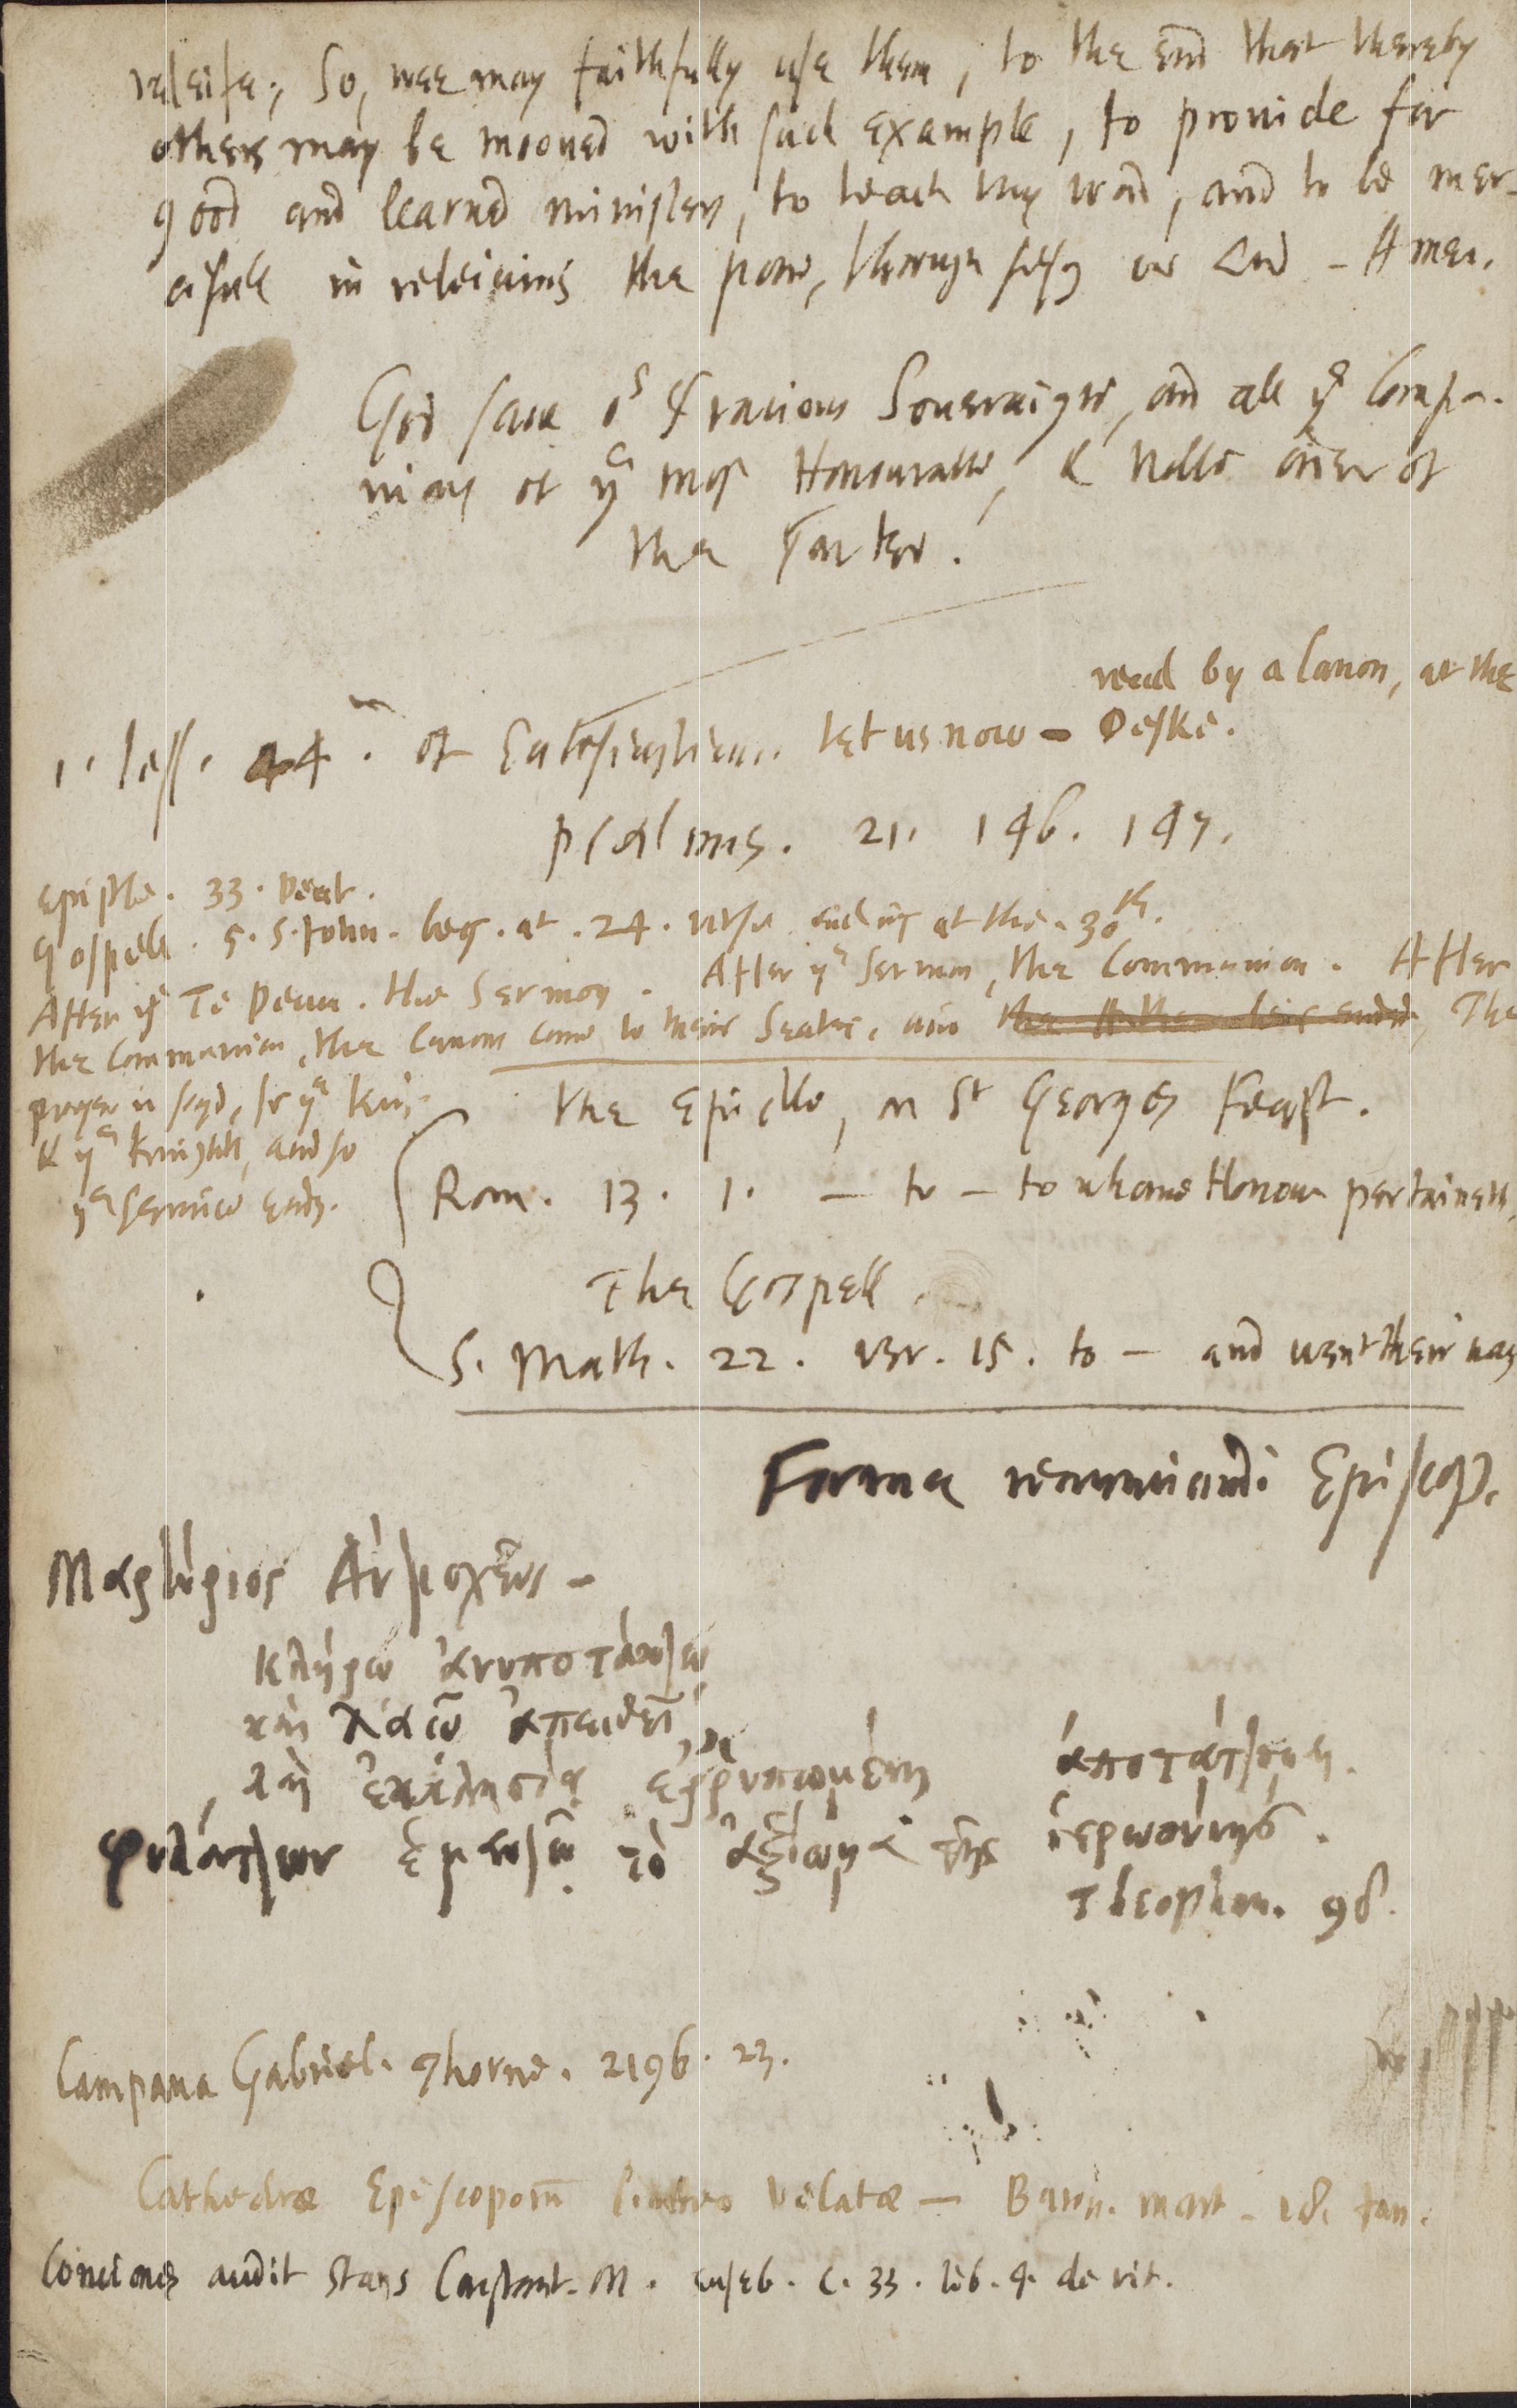 releife; So, wee may faithfully use them, to the end that thereby
others may be mooued with such example, to prouide for
good and learned ministers, to teach thy word, and to be mer-
cifull in releiuing the poore, through Jesus our Lord - Amen.
God saue oʳ Gracious Soueraigne, and all yᵉ Compa-
nions of yᵉ most Honourable, & Noble order of
the Garter.
read by a Canon, at the
1. less. 44. of Ecclesiasticus. let us now - Deske.
psalms. 21. 146. 147.
Epistle. 33. Deut.
Gospell. 5. S. John. beg. at. 24. verse ending at the. 30th.
After yᵉ Te Deum. the Sermon. After yᵉ Sermon, the Communion. After
the Communion, the Canons come to their Seates, and the , The
prayer is sayd, for yᵉ King
& yᵉ knights, and so
yᵉ seruice ends.
the Epistle, on St Georges Feast.
Rom. 13. 1. - to - to whome Honour pertaineth,
The Gospell.
S. Math. 22. ver. 15. to - and went their way
Forma renunciandi Episcop.
Μαρτύριος Ἀντιοχείας -
κλήρῳ ἀνυποτάκτῳ
καὶ λαῷ ἀπειθεῖ,
καὶ ἐκκλησίᾳ ἐρρυπωμένῃ ἀποτάττομαι.
φυλάττων ἐμαυτῷ τὸ ἀξίωμα τῆς ἱερωσύνης.
Theophan. 98.
Campana Gabriel. Thorne. 2196. 23.
Cathedrae Episcoporū linteo velatae - Baron. mart. 18. Jan.
Conciones audit stans Constant. M. euseb. c. 33. lib. 4. de vit.